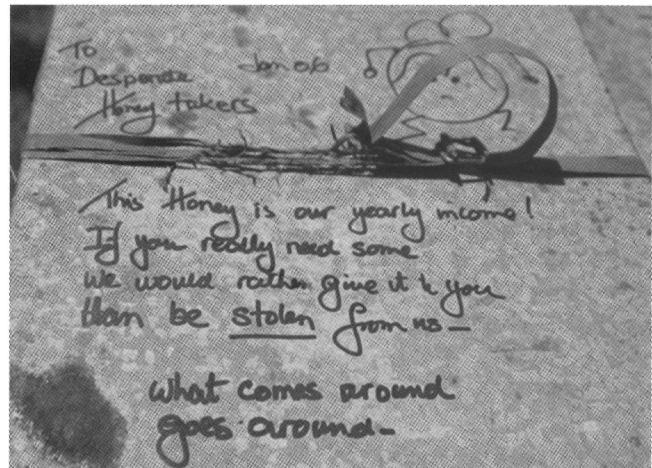 To
Desperate Jan 06
Honey takers
This Honey is our yearly income!
If you really need some
we would rather give it to you
than be stolen from us —
what comes around
goes around —